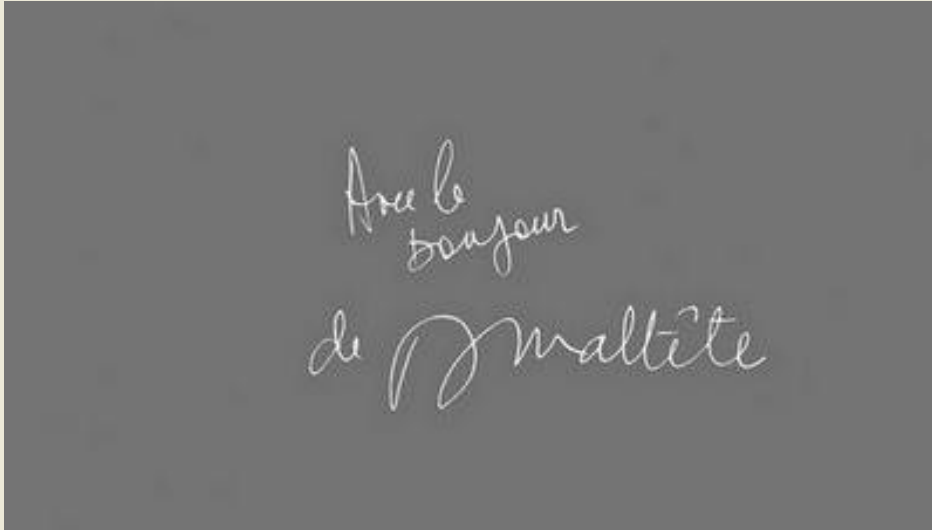 Avec le
bonjour
de Maltête